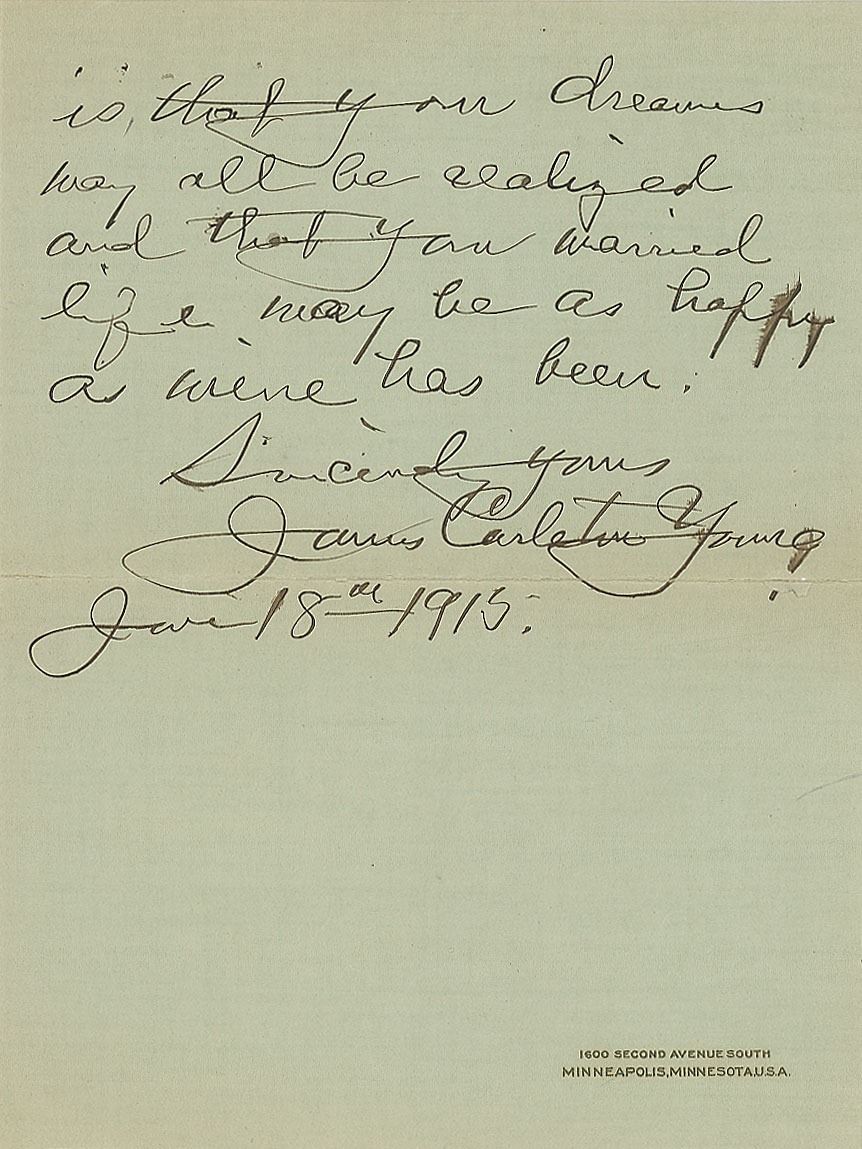 is, that your dreams
may all be realized
and that your married
life may be as happy
as mine has been.
Sincerely yours
James Carleton Young
Jan 18th 1915.
1600 SECOND AVENUE SOUTH
MINNEAPOLIS, MINNESOTA, U.S.A.